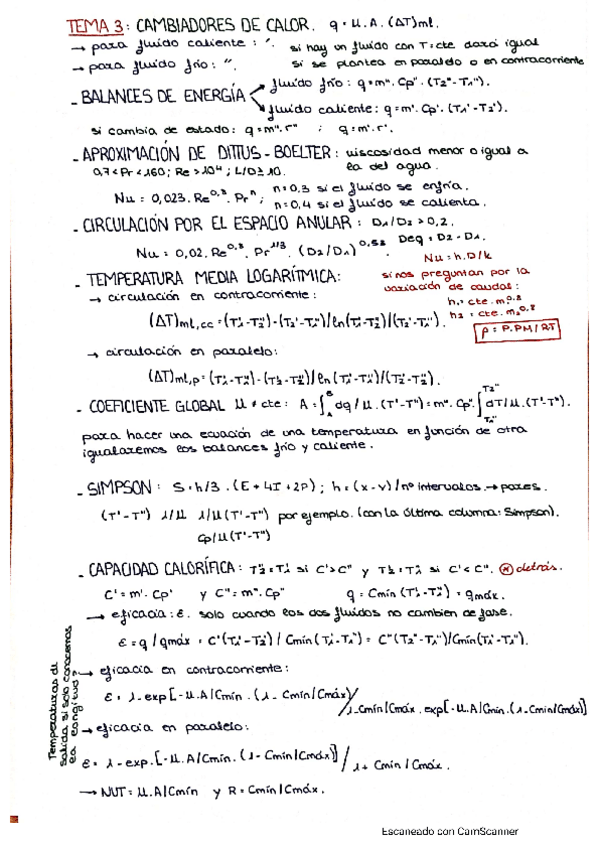 TEMA 3: CAMBIADORES DE CALOR. q = U.A.(ΔT)ml.
→ para fluido caliente: '.
si hay un fluido con T=cte dará igual
→ para fluido frío: ''.
si se plantea en paralelo o en contracorriente
- BALANCES DE ENERGÍA
fluido frío: q=m''.Cp''.(T2''-T1'').
fluido caliente: q=m'.Cp'.(T1'-T2').
si cambia de estado: q=m''.r'' ; q=m'.r'.
- APROXIMACIÓN DE DITTUS-BOELTER: viscosidad menor o igual a
la del agua.
0,7<Pr<160; Re>10⁴; L/D≥10.
Nu = 0,023.Re^0,8.Pr^n; n=0,3 si el fluido se enfría.
n=0,4 si el fluido se calienta.
- CIRCULACIÓN POR EL ESPACIO ANULAR: D1/D2>0,2.
Nu = 0,02.Re^0,8.Pr^1/3.(D2/D1)^0,53 Deq = D2-D1.
Nu=h.D/k
- TEMPERATURA MEDIA LOGARÍTMICA:
si nos preguntan por la
variación de caudal:
h1=cte.m1^0,8
h2=cte.m2^0,8
ρ=P.PM/RT
→ circulación en contracorriente:
(ΔT)ml,cc=(T1'-T2'')-(T2'-T1'')/ln(T1'-T2'')/(T2'-T1'').
→ circulación en paralelo:
(ΔT)ml,p=(T1'-T1'')-(T2'-T2'')/ln(T1'-T1'')/(T2'-T2'').
- COEFICIENTE GLOBAL U≠cte: A=∫_A^B dq/U.(T'-T'')=m''.Cp''.∫_T1''^T2'' dT/U.(T'-T'').
para hacer una ecuación de una temperatura en función de otra
igualaremos los balances frío y caliente.
- SIMPSON: S=h/3.(E+4I+2P); h=(x-v)/nº intervalos.→pares.
(T'-T'') 1/U 1/U(T'-T'') por ejemplo.(con la última columna: Simpson).
Cp/U(T'-T'')
- CAPACIDAD CALORÍFICA: T2''=T1' si C'>C'' y T2'=T1'' si C'<C''. * detrás.
C'=m'.Cp' y C''=m''.Cp'' q=Cmín(T1'-T1'')=qmáx.
→ eficacia: ε. solo cuando los dos fluidos no cambien de fase.
ε=q/qmáx = C'(T1'-T2')/Cmín(T1'-T1'')= C''(T2''-T1'')/Cmín(T1'-T1'').
Temperaturas de
salida si solo conocemos
la longitud?
→ eficacia en contracorriente:
ε= 1-exp[-U.A/Cmín.(1-Cmín/Cmáx)]/1-Cmín/Cmáx.exp[-U.A/Cmín.(1-Cmín/Cmáx)]
→ eficacia en paralelo:
ε= 1-exp.[-U.A/Cmín.(1-Cmín/Cmáx)]/1+Cmín/Cmáx.
→ NUT=U.A/Cmín y R=Cmín/Cmáx.
Escaneado con CamScanner